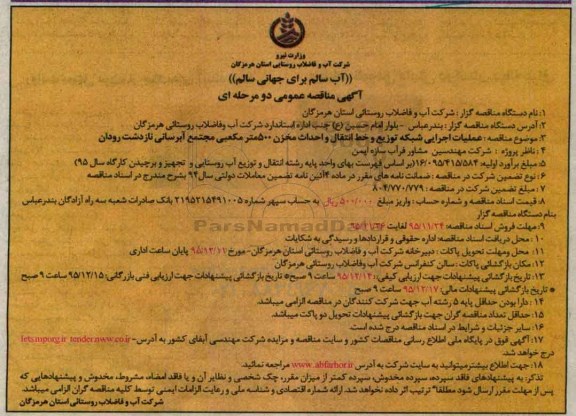 وزارت نیرو
شرکت آب و فاضلاب روستایی استان هرمزگان
((آب سالم برای جهانی سالم))
آگهی مناقصه عمومی دو مرحله ای
۱: نام دستگاه مناقصه گزار : شرکت آب و فاضلاب روستائی استان هرمزگان
۲: آدرس دستگاه مناقصه گزار : بندرعباس - بلوار امام حسین (ع) جنب اداره استاندارد شرکت آب وفاضلاب روستائی هرمزگان
۳: موضوع مناقصه : عملیات اجرایی شبکه توزیع و خط انتقال و احداث مخزن ۵۰۰متر مکعبی مجتمع آبرسانی نازدشت رودان
۴ : ناظر پروژه : شرکت مهندسین مشاور فرآب سازه ایمن
۵: مبلغ برآورد اولیه: ۱۶/۰۹۵/۴۱۵/۵۸۴(بر اساس فهرست بهای واحد پایه رشته انتقال و توزیع آب روستایی و تجهیز و برچیدن کارگاه سال ۹۵)
۶: نوع تضمین شرکت در مناقصه : ضمانت نامه های مقرر در ماده ۴آئین نامه تضمین معاملات دولتی سال۹۴ بشرح مندرج در اسناد مناقصه
۷ : مبلغ تضمین شرکت در مناقصه : ۸۰۴/۷۷۰/۷۷۹
۸: قیمت اسناد مناقصه و شماره حساب : واریز مبلغ ۵۰۰/۰۰۰ ریال به حساب سپهر شماره ۲۱۹۵۲۱۵۴۹۱۰۰۵ بانک صادرات شعبه سه راه آزادگان بندرعباس
بنام دستگاه مناقصه گزار
۹: مهلت فروش اسناد مناقصه: ۹۵/۱۱/۲۴ لغایت
۱۰ : محل دریافت اسناد مناقصه: اداره حقوقی و قراردادها و رسیدگی به شکایات
۱۱: محل ومهلت تحویل پاکات : دبیرخانه شرکت آب و فاضلاب روستائی استان هرمزگان-مورخ ۹۵/۱۲/ پایان ساعت اداری
۱۲: مکان بازگشائی پاکات : سالن کنفرانس شرکت آب وفاضلاب روستائی هرمزگان
۱۳: تاریخ بازگشائی پیشنهادات جهت ارزیابی کیفی: ۹۵/۱۲/۱۴ ساعت ۹ صبح* تاریخ بازگشائی پیشنهادات جهت ارزیابی فنی بازرگانی: ۹۵/۱۲/۱۵ ساعت ۹ صبح
* تاریخ بازگشائی پیشنهادات مالی: ۹۵/۱۲/۱۷ ساعت ۹ صبح
۱۴ : دارا بودن حداقل پایه ۵ رشته آب جهت شرکت کنندگان در مناقصه الزامی میباشد.
۱۵: حداقل تعداد مناقصه گران جهت بازگشائی پیشنهادات تحویل دو پاکت میباشد.
۱۶: سایر جزئیات و شرایط در اسناد مناقصه درج شده است.
۱۷: آگهی فوق در پایگاه ملی اطلاع رسانی مناقصات کشور و سایت مناقصه و مزایده شرکت مهندسی آبفای کشور به آدرس- iets.mporg.ir tender.nww.co.ir
درج خواهد شد.
۱۸: جهت اطلاع بیشترمیتوانید به سایت شرکت به آدرس www.abfarhor.ir مراجعه نمائید.
تذکر: به پیشنهادهای فاقد سپرده، سپرده مخدوش، سپرده کمتر از میزان مقرر، چک شخصی و نظایر آن و یا فاقد امضاء، مشروط، مخدوش و پیشنهادهایی که
پس از مهلت مقرر ارسال شود مطلقاً ترتیب اثر داده نخواهد شد. ارائه شماره اقتصادی و شناسه ملی و رعایت الزامات ایمنی توسط کلیه مناقصه گران الزامی میباشد.
شرکت آب و فاضلاب روستائی استان هرمزگان
ParsNamadData